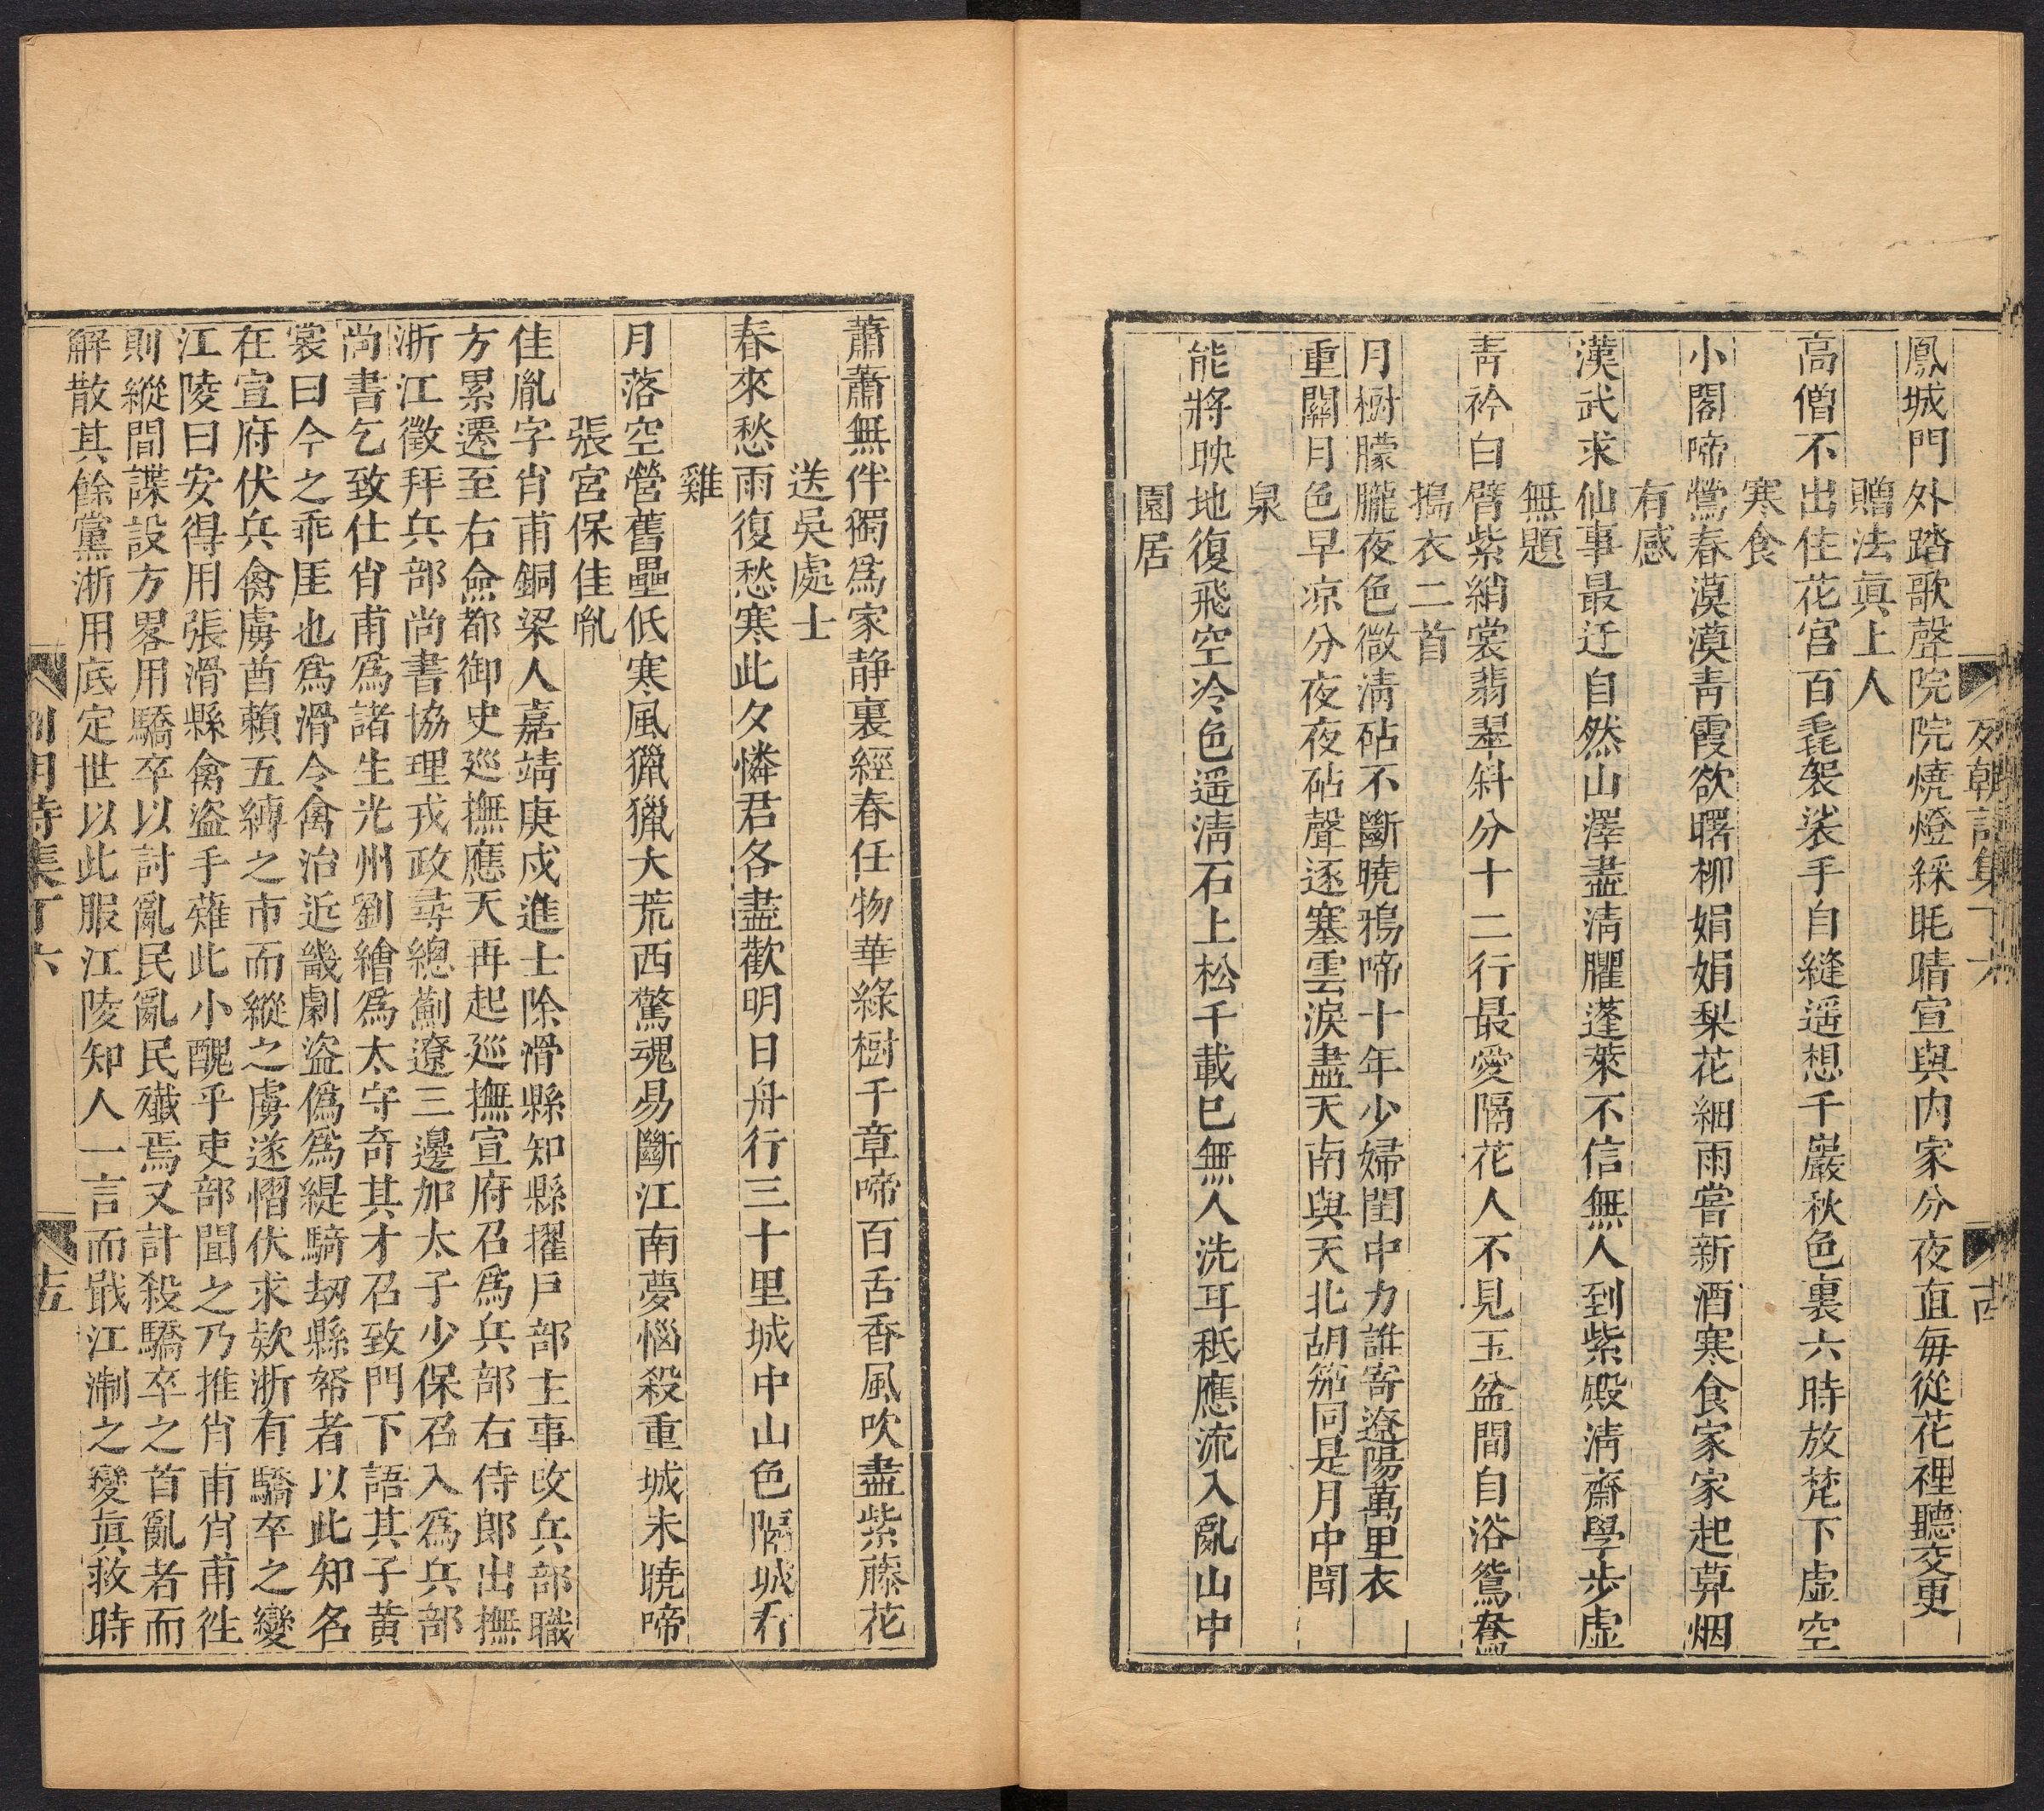 列朝詩集丁六
鳳城門外踏歌聲院院燒燈綵眊晴宣與内家分夜直每從花裡聽交更
贈法眞上人
高僧不出住花宫百毳袈裟手自縫遥想千巖秋色裏六時放梵下虚空
寒食
小閣啼鶯春漠漠靑霞欲曙柳娟娟梨花細雨嘗新酒寒食家家起葬烟
有感
漢武求仙事最迂自然山澤盡淸臞蓬萊不信無人到紫殿淸齋學步虚
無題
靑衿白臂紫綃裳翡翠斜分十二行最愛隔花人不見玉盆間自浴鴛鴦
搗衣二首
月樹朦朧夜色微淸砧不斷曉鴉啼十年少婦閨中力誰寄遼陽萬里衣
重關月色早凉分夜夜砧聲逐塞雲淚盡天南與天北胡笳同是月中聞
泉
能將映地復飛空冷色遥淸石上松千載巳無人洗耳秖應流入亂山中
園居
蕭蕭無伴獨爲家静裏經春任物華綠樹千章啼百舌香風吹盡紫藤花
送吳處士
春來愁雨復愁寒此夕憐君各盡歡明日舟行三十里城中山色隔城看
雞
月落空營舊壘低寒風獵獵大荒西驚魂易斷江南夢惱殺重城未曉啼
張宮保佳胤
佳胤字肖甫銅梁人嘉靖庚戌進士除滑縣知縣擢戸部主事改兵部職
方累遷至右僉都御史廵撫應天再起廵撫宣府召爲兵部右侍郎出撫
浙江徵拜兵部尚書協理戎政尋總薊遼三邊加太子少保召入爲兵部
尚書乞致仕肖甫爲諸生光州劉繪爲太守奇其才召致門下語其子黄
裳曰今之乖厓也爲滑令禽治近畿劇盗僞爲緹騎刼縣帑者以此知名
在宣府伏兵禽虜酋賴五縛之市而縱之虜遂慴伏求欵浙有驕卒之變
江陵曰安得用張滑縣禽盗手薙此小醜乎吏部聞之乃推肖甫肖甫徃
則縱間諜設方畧用驕卒以討亂民亂民殲焉又計殺驕卒之首亂者而
解散其餘黨浙用底定世以此服江陵知人一言而戢江淛之變眞救時
列朝詩集丁六 十五